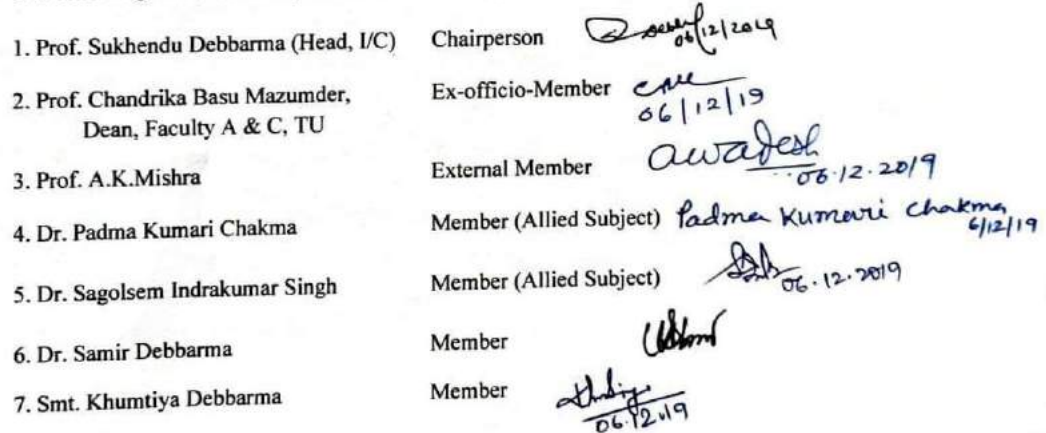 1. Prof. Sukhendu Debbarma (Head, I/C) Chairperson 06/12/2019
2. Prof. Chandrika Basu Mazumder, Ex-officio-Member
Dean, Faculty A & C, TU 06/12/19
3. Prof. A.K.Mishra External Member Awadesh 06.12.2019
4. Dr. Padma Kumari Chakma Member (Allied Subject) Padma Kumari Chakma 6/12/19
5. Dr. Sagolsem Indrakumar Singh Member (Allied Subject) 06.12.2019
6. Dr. Samir Debbarma Member
7. Smt. Khumtiya Debbarma Member 06.12.19